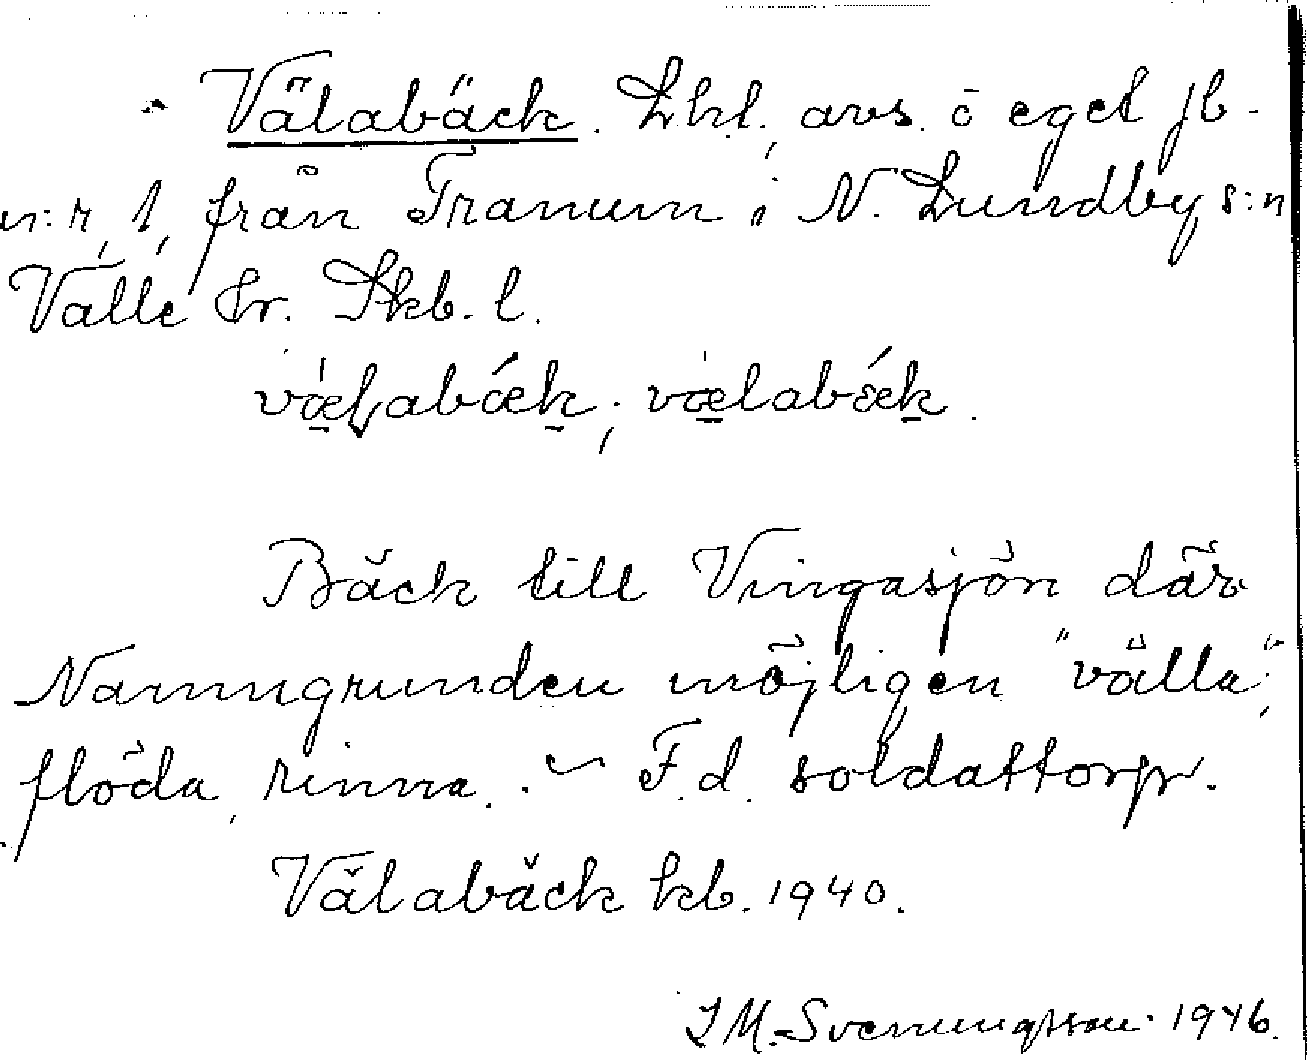 Välabäck. Lht., avs. o eget jb-
n:r, 1, från Tranum i N. Lundby s:n
Valle hr. Skb. l.
väḷabä́ck; vælabä́k.
Bäck till Vingasjön där
Namngrunden möjligen "välla",
flöda, rinna. - F.d. soldattorp.
Välabäck kb. 1940.
I M. Svenungsson. 1946.